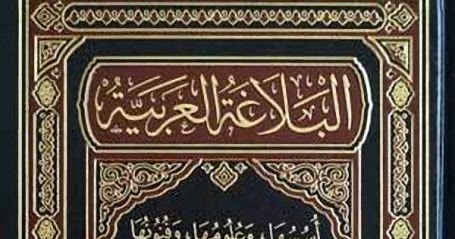 البَلَاغَةُ العَرَبِيَّةُ
أُسُسُهَا، وَعُلُومُهَا، وَفُنُونُهَا